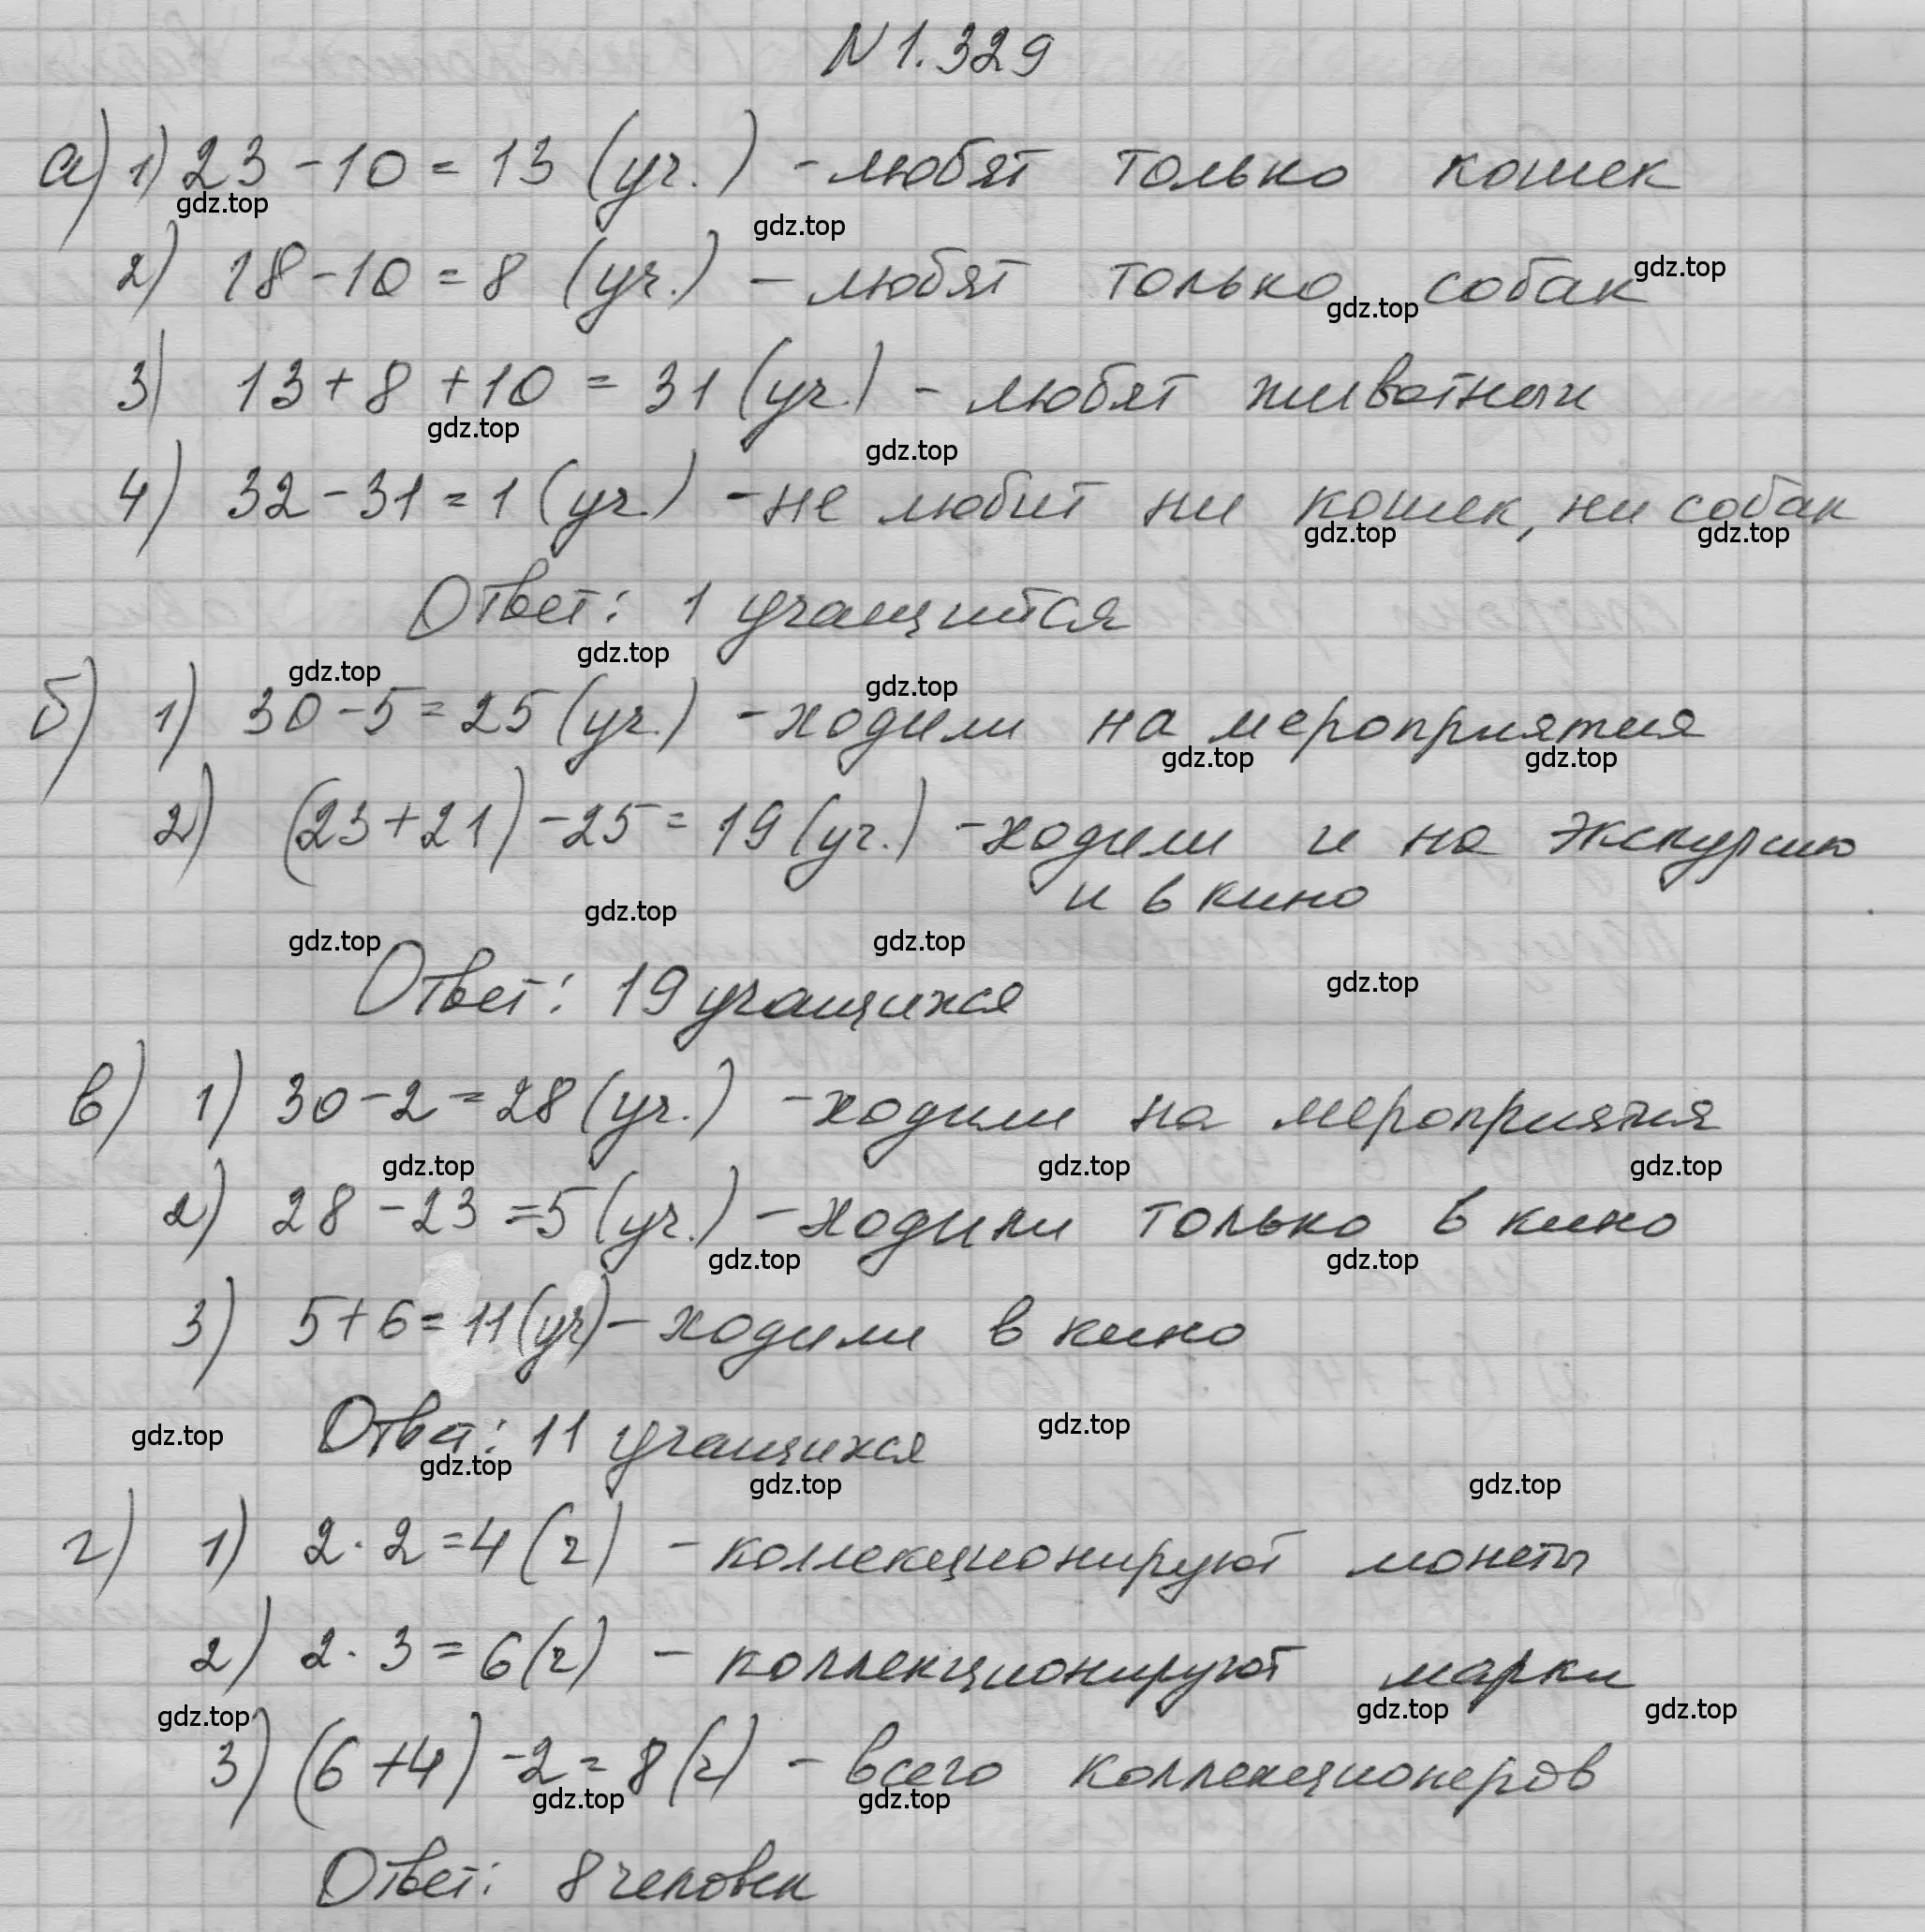 N 1.329
а) 1) 23 - 10 = 13 (уч.) - любят только кошек
gdz.top gdz.top
2) 18 - 10 = 8 (уч.) - любят только собак
gdz.top gdz.top
3) 13 + 8 + 10 = 31 (уч.) - любят животных
gdz.top gdz.top
4) 32 - 31 = 1 (уч.) - не любит ни кошек, ни собак
gdz.top gdz.top
Ответ: 1 учащийся
gdz.top gdz.top gdz.top
б) 1) 30 - 5 = 25 (уч.) - ходили на мероприятия
gdz.top gdz.top
2) (23 + 21) - 25 = 19 (уч.) - ходили и на экскурсию
и в кино
gdz.top
gdz.top gdz.top gdz.top
Ответ: 19 учащихся
в) 1) 30 - 2 = 28 (уч.) - ходили на мероприятия
gdz.top gdz.top gdz.top
2) 28 - 23 = 5 (уч.) - ходили только в кино
gdz.top gdz.top
3) 5 + 6 = 11 (уч) - ходили в кино
Ответ: 11 учащихся
gdz.top gdz.top gdz.top
gdz.top gdz.top
г) 1) 2 · 2 = 4 (ч) - коллекционируют монеты
2) 2 · 3 = 6 (ч) - коллекционируют марки
gdz.top gdz.top gdz.top
3) (6 + 4) - 2 = 8 (ч) - всего коллекционеров
gdz.top gdz.top
Ответ: 8 человек